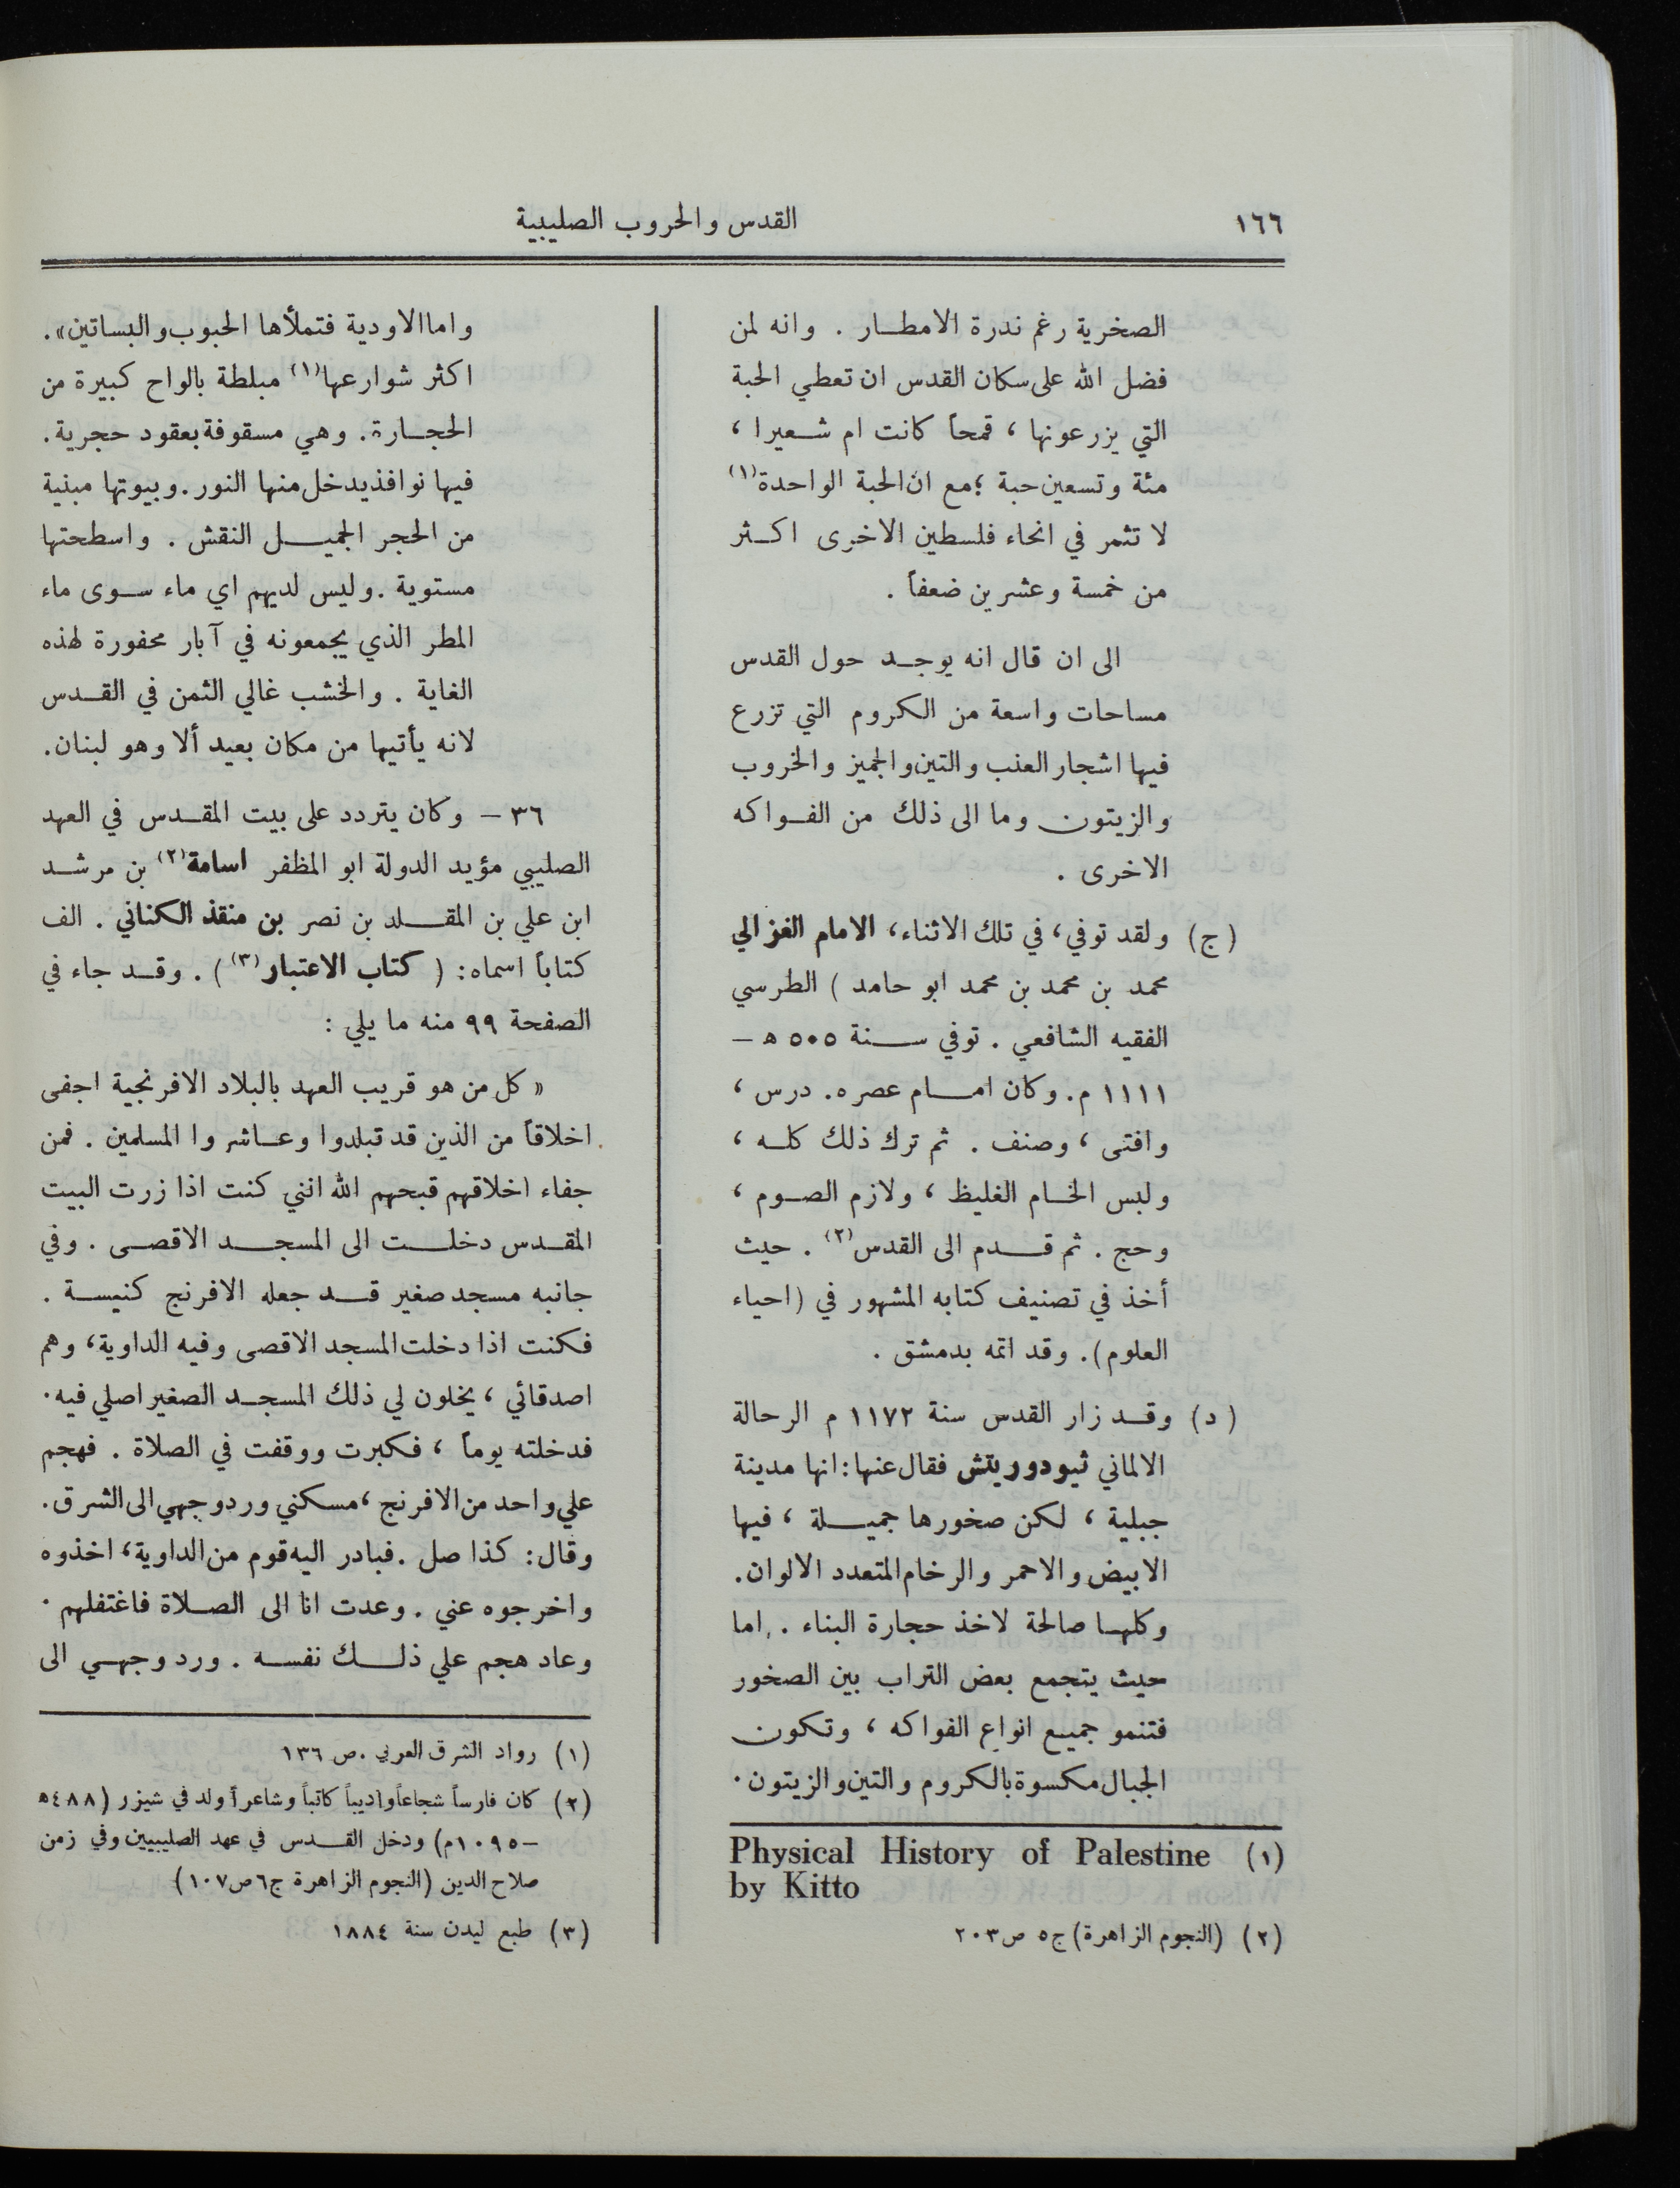 ١٦٦
القدس والحروب الصليبية
الصخرية رغم ندرة الامطار . وانه لمن
فضل الله على سكان القدس ان تعطي الحبة
التي يزرعونها ، قمحاً كانت ام شعيرا ،
مئة وتسعين حبة ؛ مع ان الحبة الواحدة(١)
لا تثمر في انحاء فلسطين الاخرى اكثر
من خمسة وعشرين ضعفاً .
الى ان قال انه يوجد حول القدس
مساحات واسعة من الكروم التي تزرع
فيها اشجار العنب والتين والجميز والخروب
والزيتون وما الى ذلك من الفواكه
الاخرى .
(ج) ولقد توفي، في تلك الاثناء، الامام الغزالي
محمد بن محمد بن محمد ابو حامد ) الطرسي
الفقيه الشافعي . توفي سنة ٥٠٥ ه –
١١١١ م. وكان امام عصره. درس ،
وافتى ، وصنف . ثم ترك ذلك كله ،
ولبس الخام الغليظ ، ولازم الصوم ،
وحج . ثم قدم الى القدس(٢) . حيث
أخذ في تصنيف كتابه المشهور في (احياء
العلوم). وقد اتمه بدمشق .
(د) وقد زار القدس سنة ١١٧٢ م الرحالة
الالماني ثيودوريتش فقال عنها: انها مدينة
جبلية ، لكن صخورها جميلة ، فيها
الابيض والاحمر والرخام المتعدد الالوان.
وكلها صالحة لاخذ حجارة البناء . اما
حيث يتجمع بعض التراب بين الصخور
فتنمو جميع انواع الفواكه ، وتكون
الجبال مكسوة بالكروم والتين والزيتون.
(١) Physical History of Palestine
by Kitto
(٢) (النجوم الزاهرة) ج٥ ص٢٠٣
واما الاودية فتملأها الحبوب والبساتين».
اكثر شوارعها(١) مبلطة بالواح كبيرة من
الحجارة. وهي مسقوفة بعقود حجرية.
فيها نوافذ يدخل منها النور. وبيوتها مبنية
من الحجر الجميل النقش . واسطحتها
مستوية . وليس لديهم اي ماء سوى ماء
المطر الذي يجمعونه في آبار محفورة لهذه
الغاية . والخشب غالي الثمن في القدس
لانه يأتيها من مكان بعيد ألا وهو لبنان.
٣٦ – وكان يتردد على بيت المقدس في العهد
الصليبي مؤيد الدولة ابو المظفر اسامة(٢) بن مرشد
ابن علي بن المقلد بن نصر بن منقذ الكناني . الف
كتاباً اسماه: ( كتاب الاعتبار(٣) ) . وقد جاء في
الصفحة ٩٩ منه ما يلي :
« كل من هو قريب العهد بالبلاد الافرنجية اجفى
اخلاقاً من الذين قد تبلدوا وعاشروا المسلمين . فمن
جفاء اخلاقهم قبحهم الله انني كنت اذا زرت البيت
المقدس دخلت الى المسجد الاقصى . وفي
جانبه مسجد صغير قد جعله الافرنج كنيسة .
فكنت اذا دخلت المسجد الاقصى وفيه الداوية، وهم
اصدقائي ، يخلون لي ذلك المسجد الصغير اصلي فيه.
فدخلته يوماً ، فكبرت ووقفت في الصلاة . فهجم
علي واحد من الافرنج ، مسكني ورد وجهي الى الشرق.
وقال: كذا صل . فبادر اليه قوم من الداوية، اخذوه
واخرجوه عني . وعدت انا الى الصلاة فاغتفلهم .
وعاد هجم علي ذلك نفسه . ورد وجهي الى
(١) رواد الشرق العربي . ص ١٣٦
(٢) كان فارساً شجاعاً واديباً كاتباً وشاعراً ولد في شيزر (٤٨٨ه
–١٠٩٥م) ودخل القدس في عهد الصليبيين وفي زمن
صلاح الدين (النجوم الزاهرة ج٦ ص١٠٧)
(٣) طبع ليدن سنة ١٨٨٤